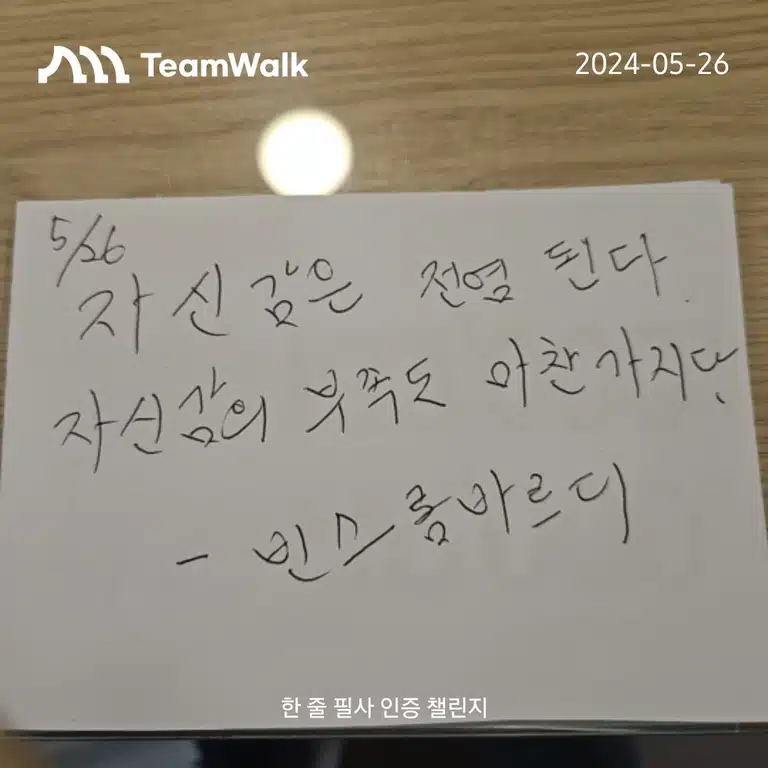 TeamWalk
2024-05-26
5/26
자신감은 전염 된다.
자신감의 부족도 마찬가지다.
- 빈스롬바르디
한 줄 필사 인증 챌린지